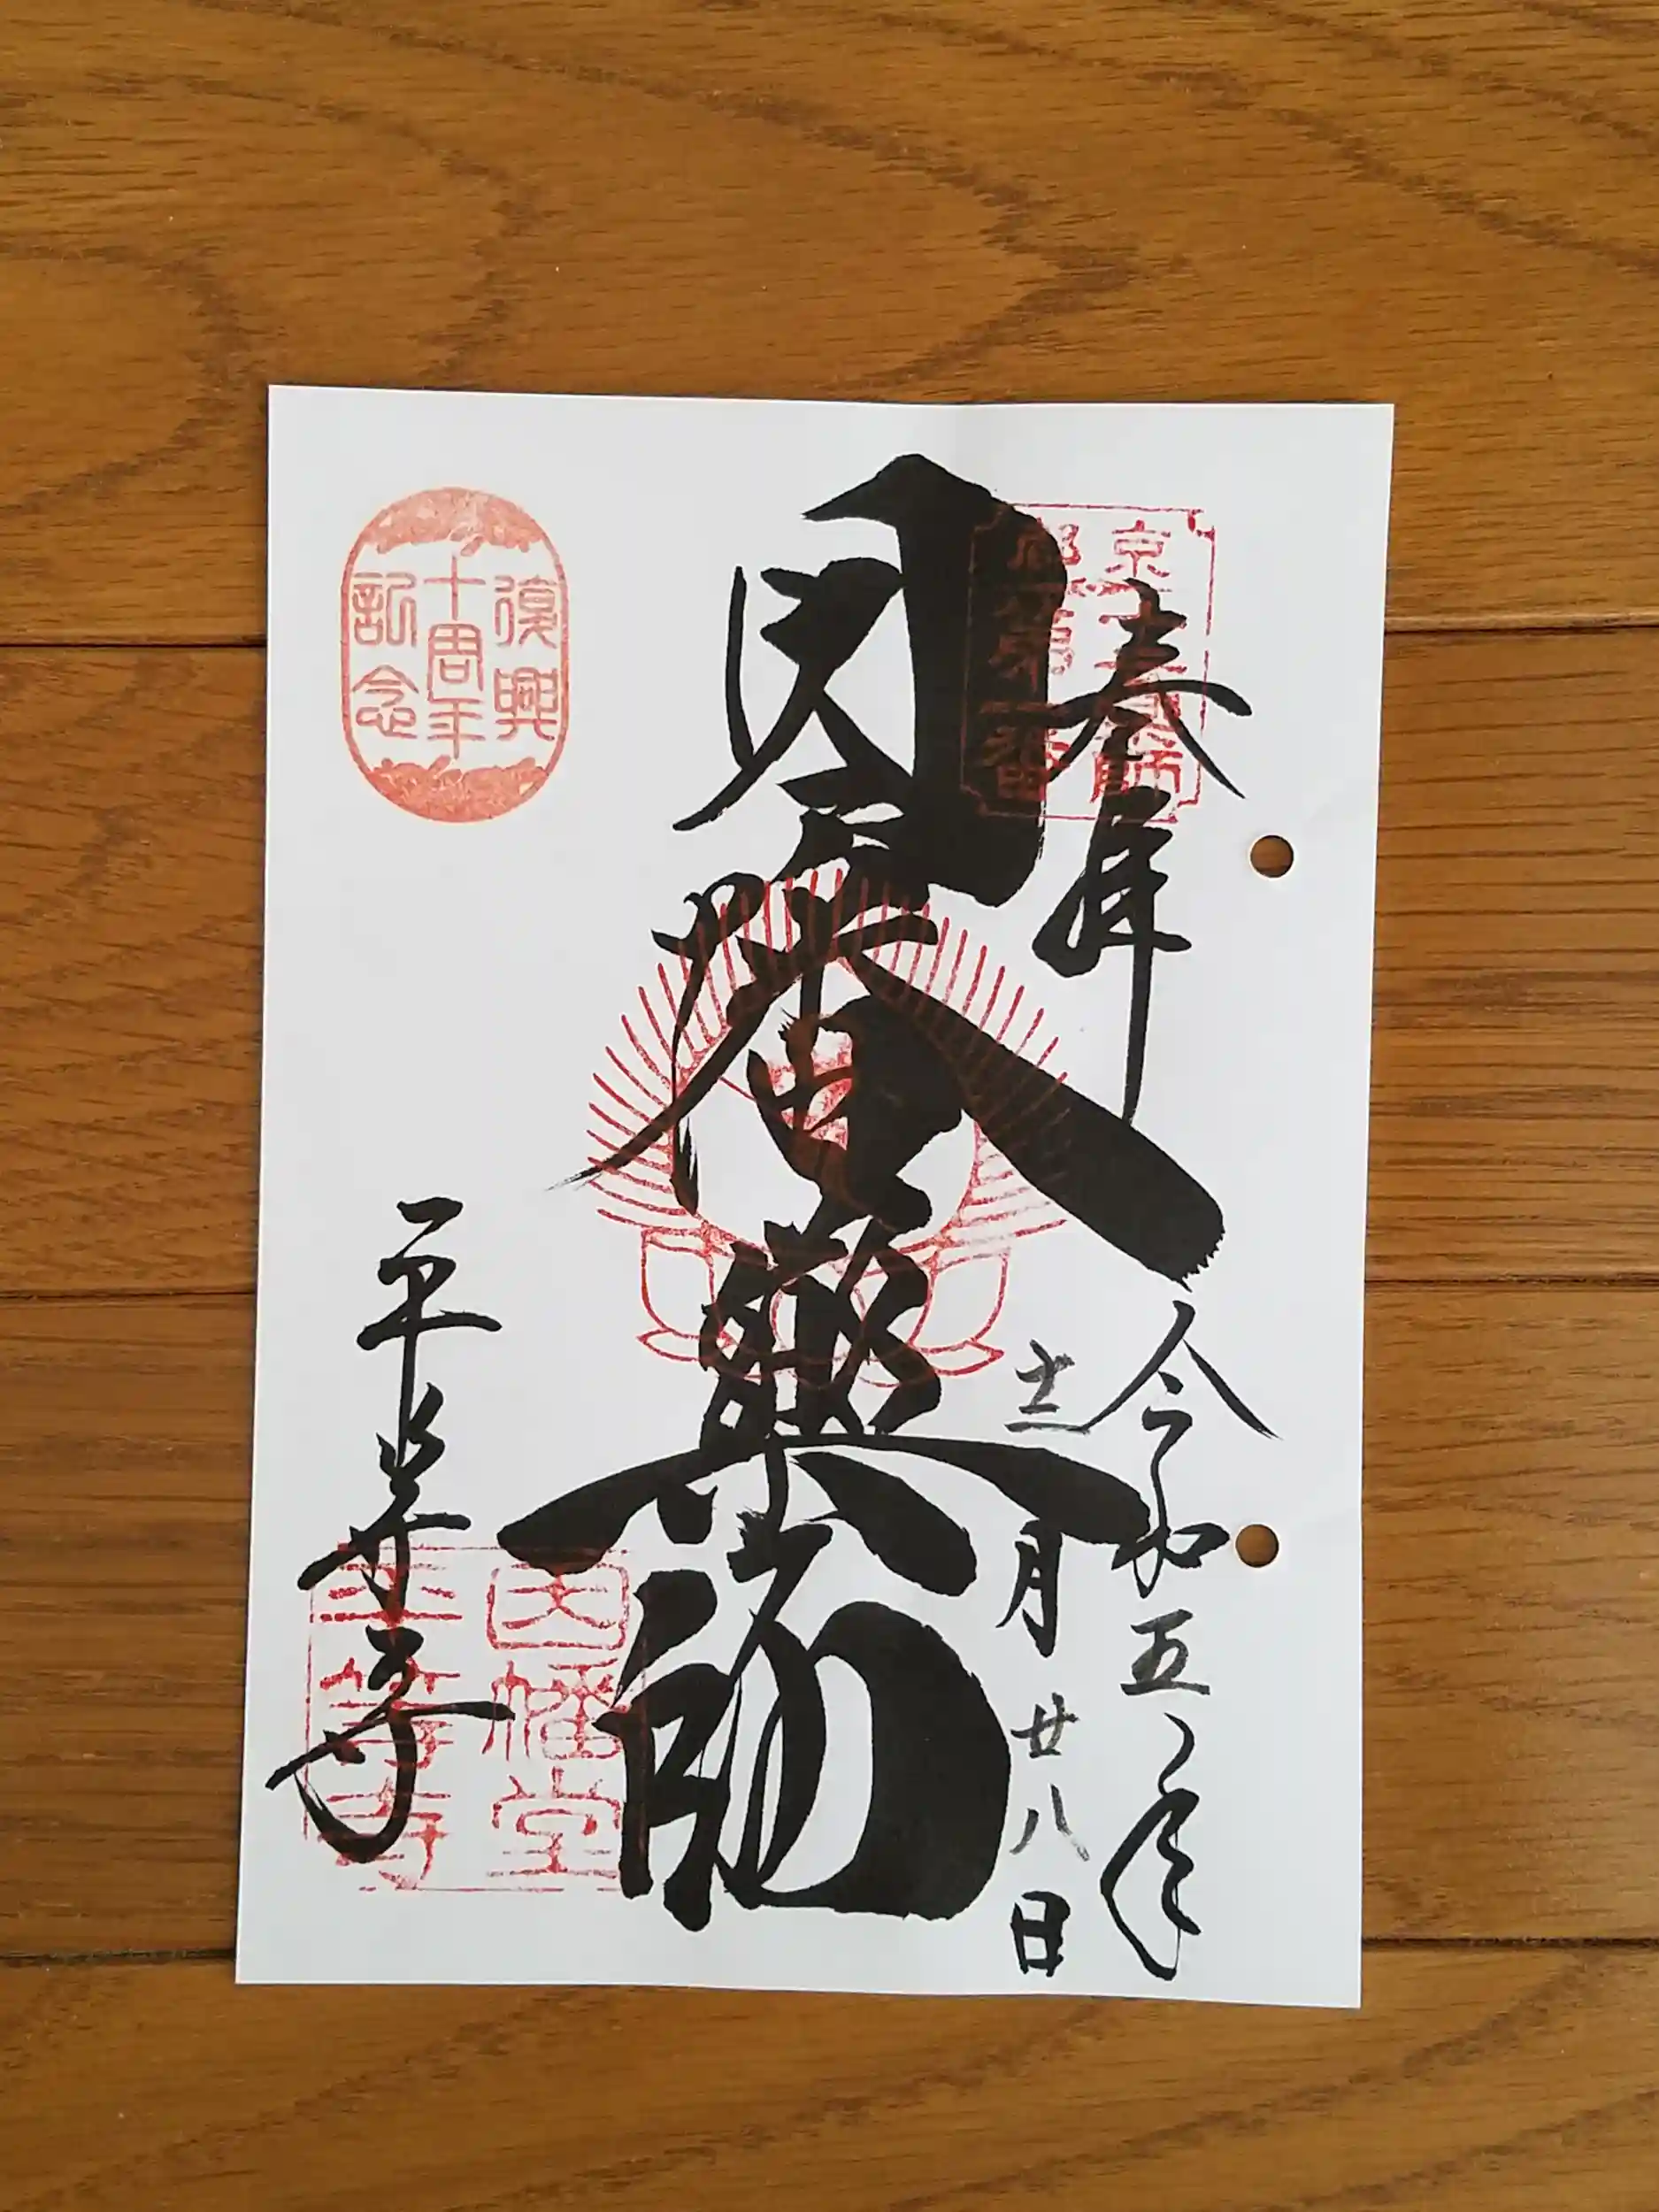 奉拝
令和五年
十二月廿八日
京都十二薬師
第一番
因幡薬師
平等寺
因幡堂
平等寺
復興
十周年
記念